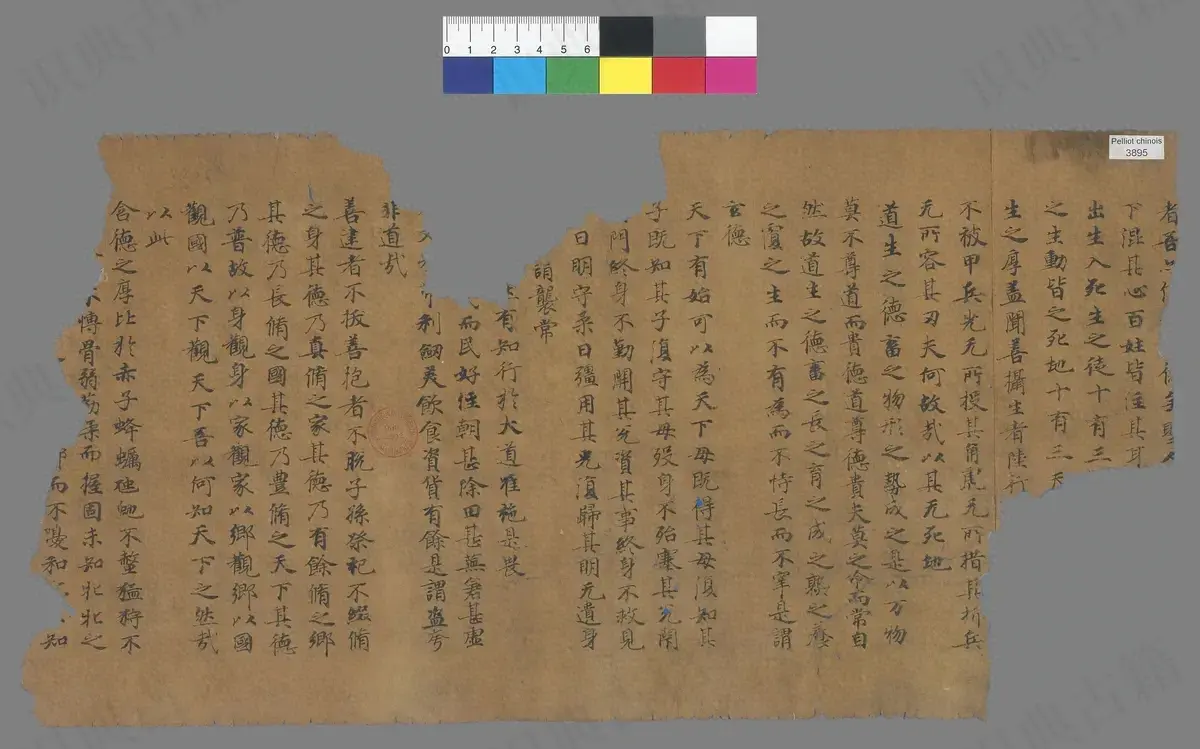 Pelliot chinois
3895
0 1 2 3 4 5 6
者吾
下混其心百姓皆注其耳
出生入死生之徒十有三
之生動皆之死地十有三夫
生之厚盖聞善攝生者陸行
不被甲兵兕无所投其角虎无所措其抓兵
无所容其刃夫何故哉以其无死地
道生之德畜之物形之勢成之是以万物
莫不尊道而貴德道尊德貴夫莫之命而常自
然故道生之德畜之長之育之成之熟之養
之覆之生而不有為而不恃長而不宰是謂
玄德
天下有始可以為天下母既得其母復知其
子既知其子復守其母歿身不殆塞其兌閇
門終身不勤開其兌濟其事終身不救見
曰明守柔曰彊用其光復歸其明无遺身
謂襲常
有知行於大道唯施是畏
而民好徑朝甚除田甚蕪倉甚虛
利劒美飲食資貨有餘是謂盜夸
非道哉
善建者不拔善抱者不脫子孫祭祀不綴脩
之身其德乃真脩之家其德乃有餘脩之鄉
其德乃長脩之國其德乃豊脩之天下其德
乃普故以身觀身以家觀家以鄉觀鄉以國
觀國以天下觀天下吾以何知天下之然哉
以此
含德之厚比於赤子蜂蠆虺虵不螫猛狩不
不慱骨弱筋柔而握固未知牝牡之
而不嗄和知